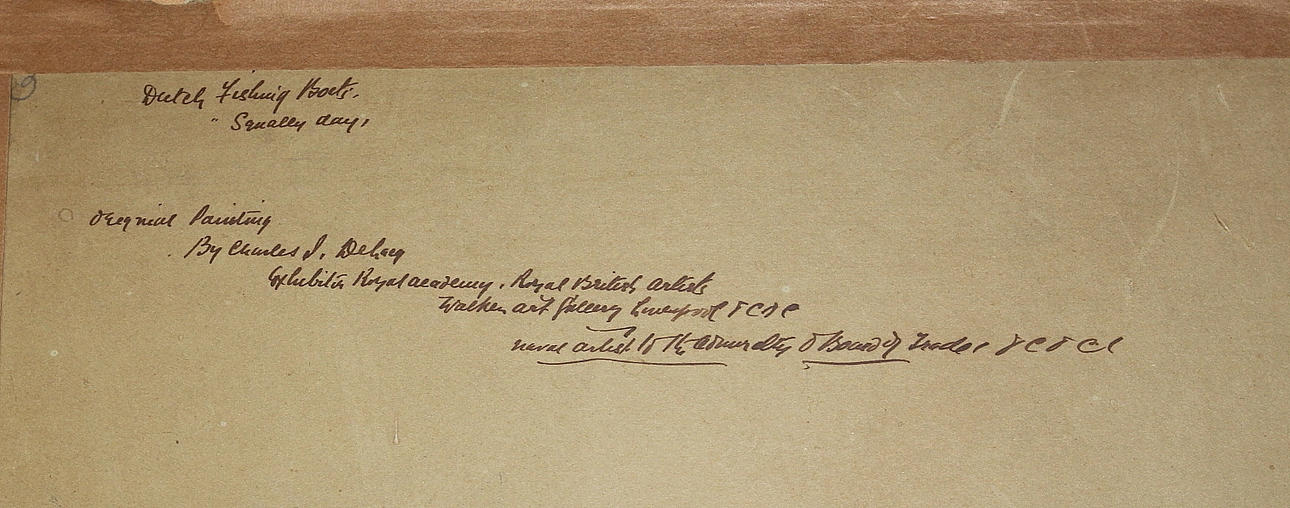 Dutch Fishing Boats.
" Squally day,
Original Painting
By Charles J. DeLacy
Exhibitor Royal academy, Royal British artists
Walker art Gallery Liverpool &c &c
naval artist to the admiralty & Board of Trade &c &c